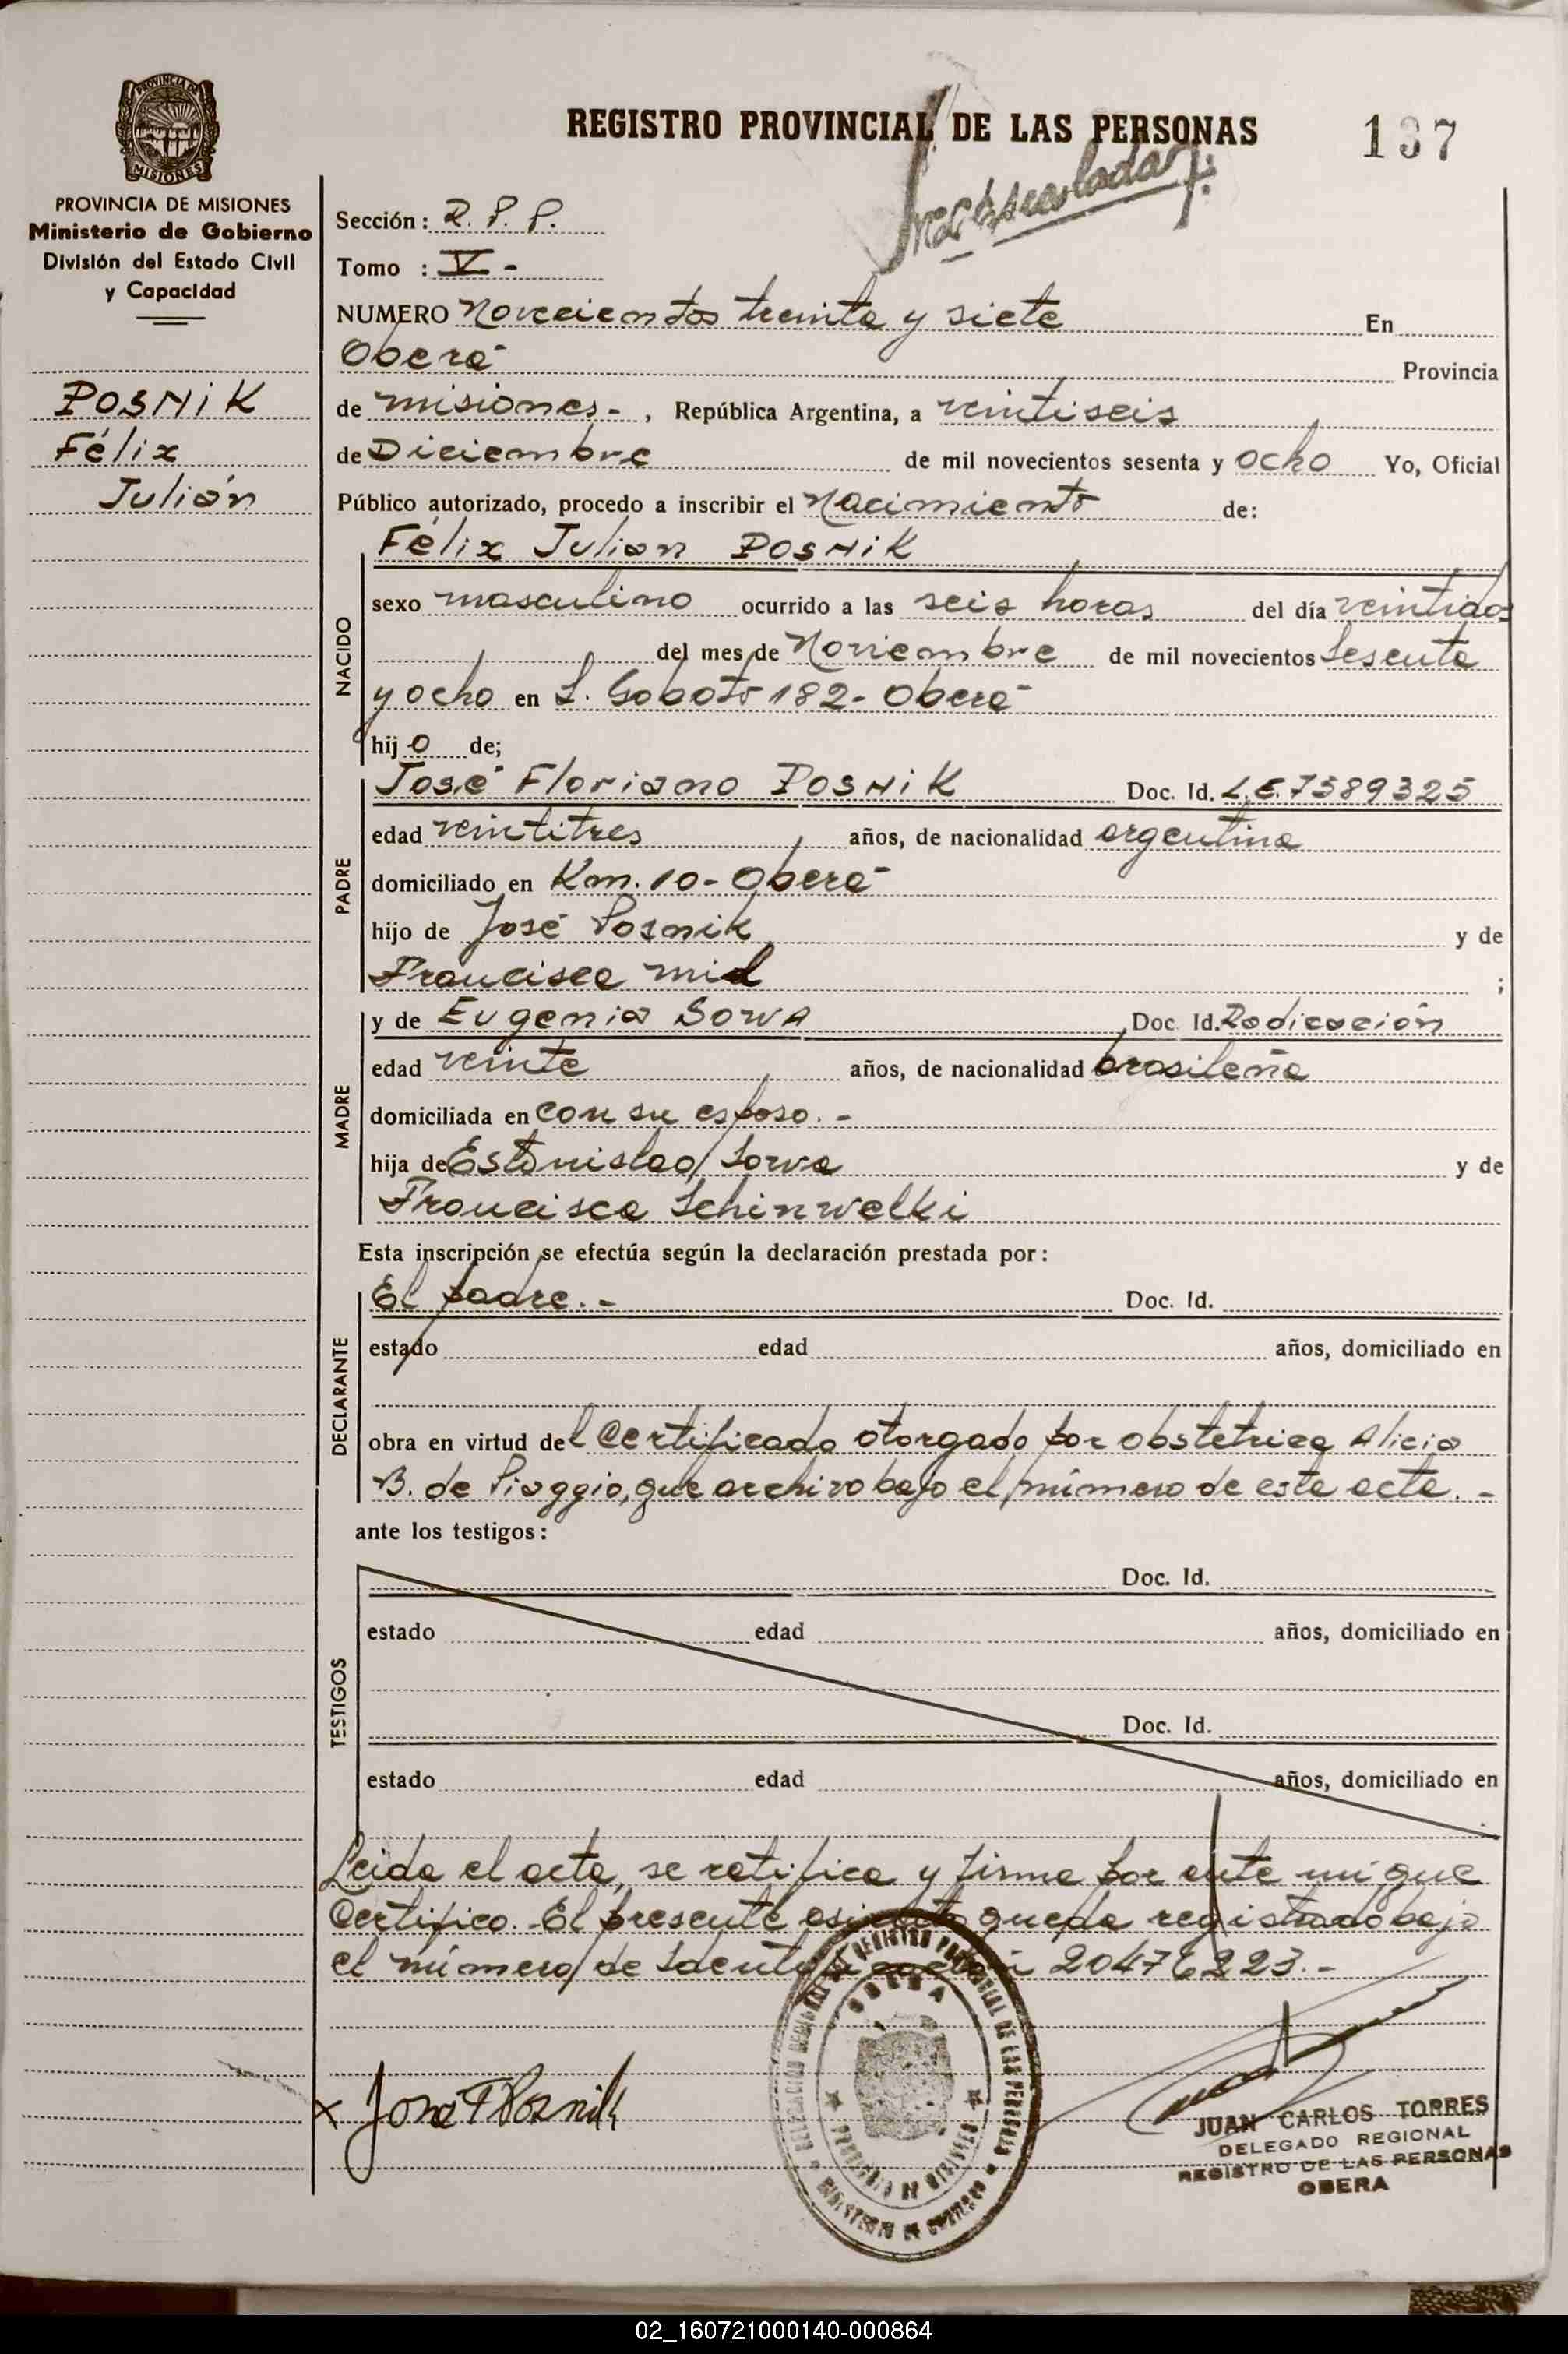 PROVINCIA DE
MISIONES
PROVINCIA DE MISIONES
Ministerio de Gobierno
División del Estado Civil
y Capacidad
POSNiK
Félix
Julián
REGISTRO PROVINCIAL DE LAS PERSONAS 137
Sección: R. P. P.
Tomo : V -
NUMERO Novecientos treinta y siete En
Oberá Provincia
de misiones - , República Argentina, a veintiseis
de Diciembre de mil novecientos sesenta y ocho Yo, Oficial
Público autorizado, procedo a inscribir el Nacimiento de:
NACIDO
Félix Julian POSNiK
sexo masculino ocurrido a las seis horas del día veintidos
del mes de Noviembre de mil novecientos Sesenta
y ocho en S. Gaboto 182 - Oberá
hijo de;
PADRE
José Floriano POSNiK Doc. Id. L.E. 7589325
edad veintitres años, de nacionalidad argentina
domiciliado en Km. 10 - Oberá
hijo de José Posnik y de
Francisca mid ;
MADRE
y de Eugenia SOWA Doc. Id. Radicación
edad veinte años, de nacionalidad brasileña
domiciliada en con su esposo. -
hija de Estanislao Sowa y de
Francisca Schinwelki
Esta inscripción se efectúa según la declaración prestada por:
DECLARANTE
El padre. - Doc. Id.
estado edad años, domiciliado en
obra en virtud del Certificado otorgado por obstetrica Alicia
B. de Piaggio, que archivo bajo el número de esta acta. -
ante los testigos:
TESTIGOS
Doc. Id.
estado edad años, domiciliado en
Doc. Id.
estado edad años, domiciliado en
Leida el acta, se ratifica y firma por ante mi que
Certifico. El presente asiento queda registrado bajo
el número de Identificación 20476223. -
x José F Posnik
OBERA
PROVINCIA DE MISIONES
JUAN CARLOS TORRES
DELEGADO REGIONAL
REGISTRO DE LAS PERSONAS
OBERA
02_160721000140-000864